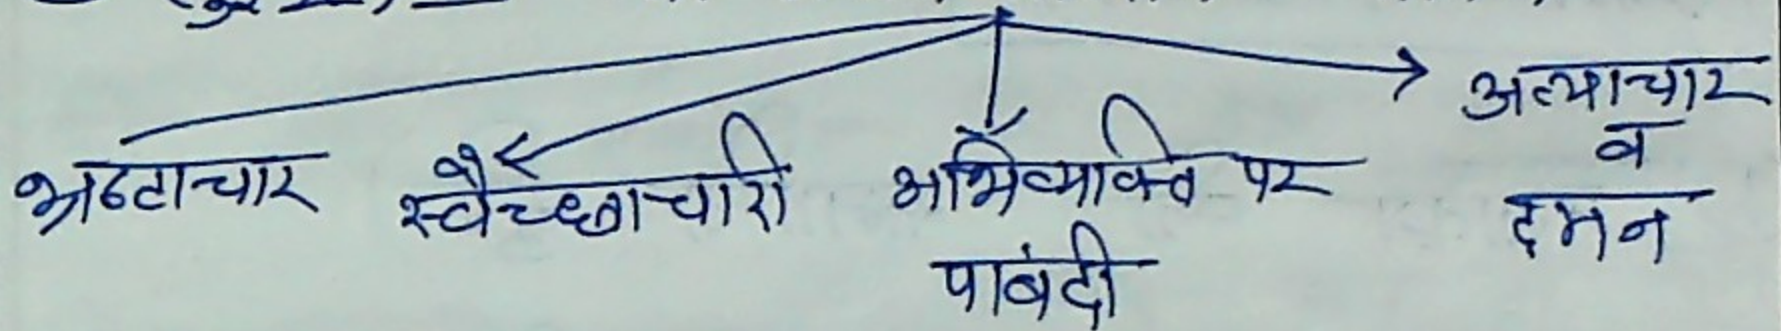 भ्रष्टाचार स्वैच्छाचारी अभिव्यक्ति पर पाबंदी अत्याचार व दमन